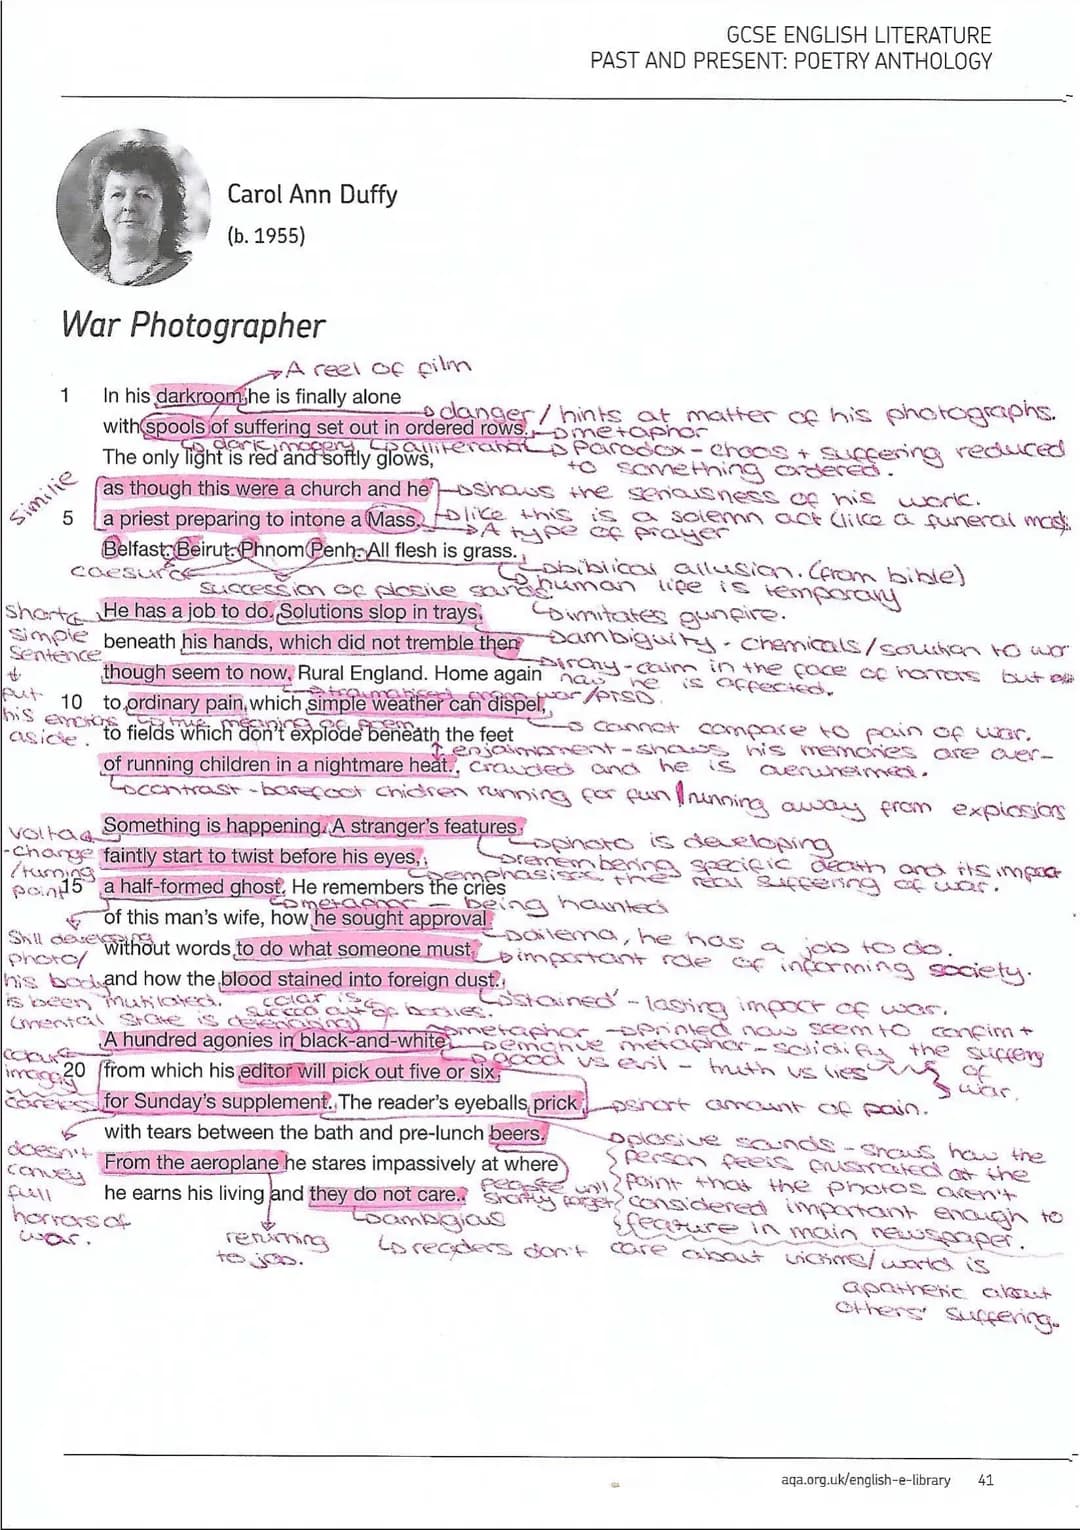 GCSE ENGLISH LITERATURE
PAST AND PRESENT: POETRY ANTHOLOGY
Carol Ann Duffy
(b. 1955)
War Photographer
A reel of film
1 In his darkroom he is finally alone
danger / hints at matter of his photographs.
with spools of suffering set out in ordered rows.
metaphor
dark imagery
Paradox - chaos + suffering reduced
to something ordered.
The only light is red and softly glows,
Similie
as though this were a church and he
shows the seriousness of his work.
5 a priest preparing to intone a Mass.
like this is a solemn act (like a funeral
A type of prayer
Belfast. Beirut. Phnom Penh. All flesh is grass.
biblical allusion. (from bible)
caesura
succession of plosive sounds
human life is temporary
imitates gunfire.
He has a job to do. Solutions slop in trays
Short simple sentence
put his emotions aside.
ambiguity - chemicals/solution to
beneath his hands, which did not tremble then
irony - calm in the face of horrors but
now he is affected.
though seem to now. Rural England. Home again
war/PTSD.
10 to ordinary pain which simple weather can dispel,
true meaning of
cannot compare to pain of war.
to fields which don't explode beneath the feet
enjambment - shows his memories are over-
crowded and he is overwhelmed.
of running children in a nightmare heat.
contrast - barefoot children running for fun / running away from explosions
Something is happening. A stranger's features
photo is developing
Volta
- change /turning point
faintly start to twist before his eyes,
remembering specific death and its impact
emphasises the real suffering of war.
15 a half-formed ghost. He remembers the cries
metaphor - being haunted
of this man's wife, how he sought approval
dailema, he has a job to do.
Still developing photo/
his body is been mutilated.
(mental state is
without words to do what someone must
important role of informing society.
and how the blood stained into foreign dust.
'stained' - lasting impact of war.
colour is sucked out of bodies.
A hundred agonies in black-and-white
metaphor - printed now seem to confirm +
metaphor - solidify the suffering of war.
good vs evil - truth vs lies
20 from which his editor will pick out five or six
for Sunday's supplement. The reader's eyeballs prick
short amount of pain.
with tears between the bath and pre-lunch beers.
doesn't convey full horrors of war.
plosive sounds - shows how the
person feels frustrated at the
point that the photos aren't
considered important enough to
feature in main newspaper.
From the aeroplane he stares impassively at where
people will shortly forget
he earns his living and they do not care.
returning to job.
ambigious
readers don't care about victims/world is
apathetic about
others' suffering.
aqa.org.uk/english-e-library 41